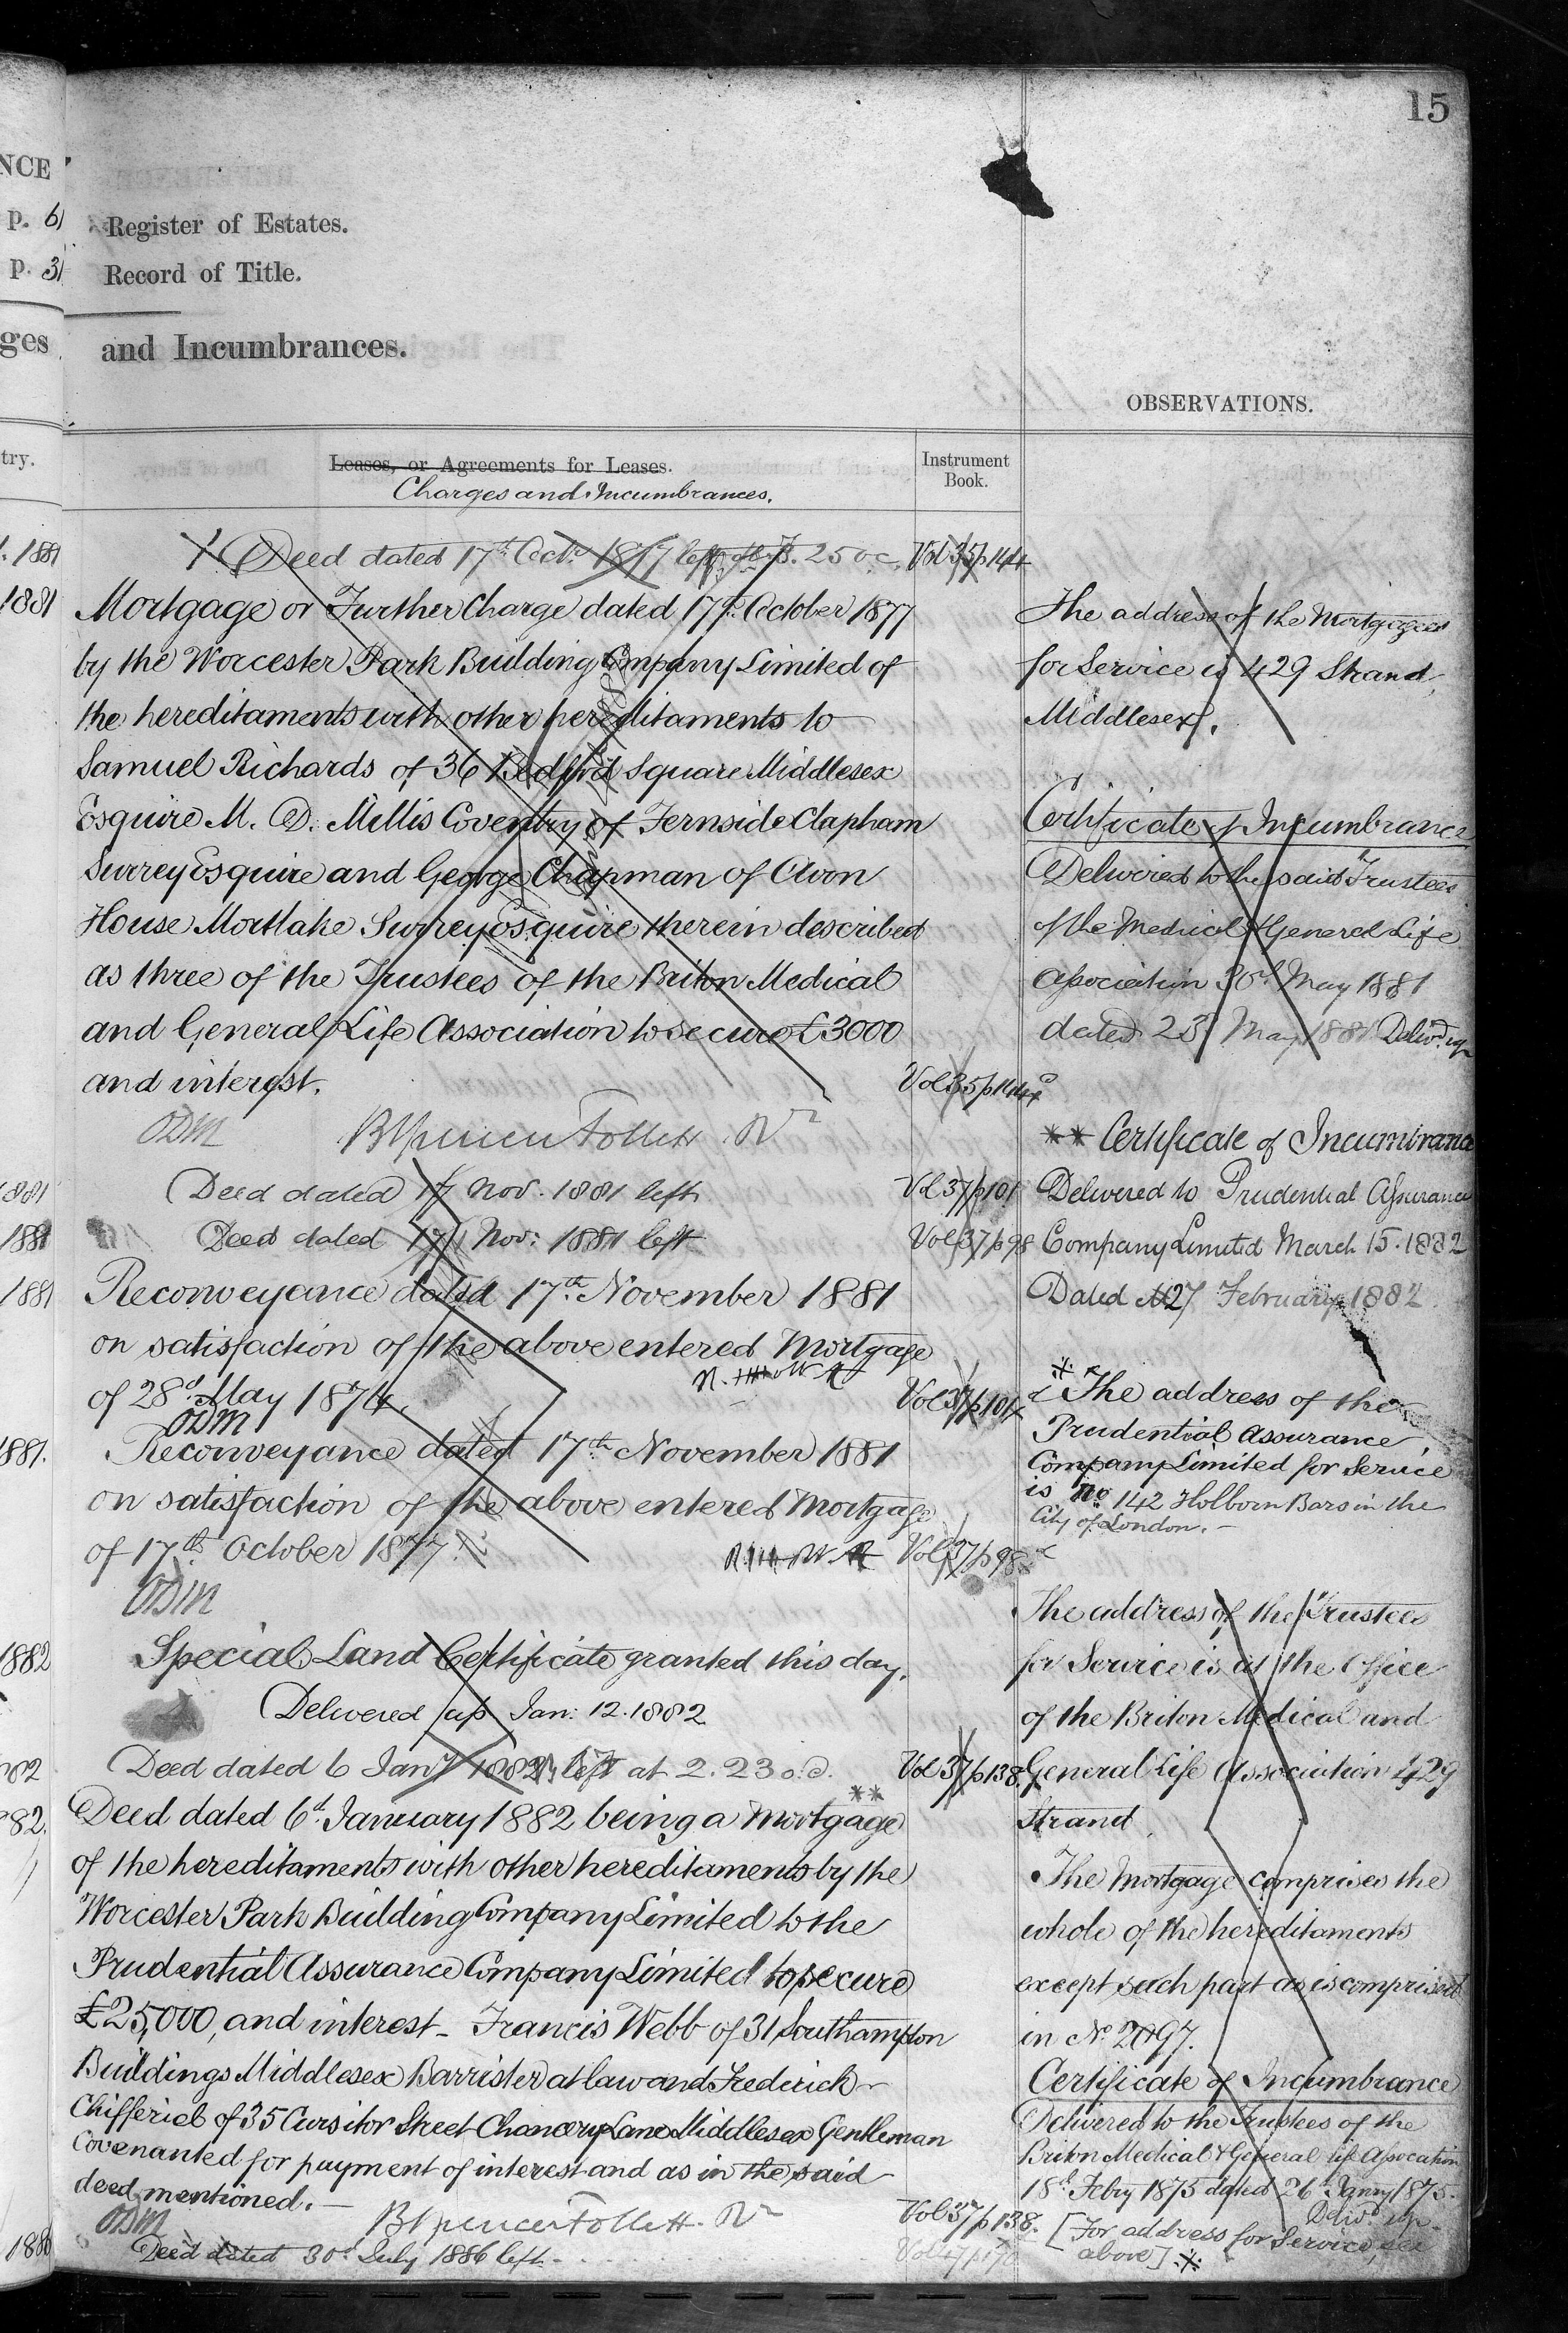 15
NCE
p. 6
Register of Estates.
p. 3
Record of Title.
ges
and Incumbrances.
OBSERVATIONS.
try.
Leases, or Agreements for Leases.
Charges and Incumbrances.
Instrument
Book.
1881
Deed dated 17th Octr. 1877 left at 2.50 Vol 35 p 144
1881
Mortgage or Further Charge dated 17th October 1877
by the Worcester Park Building Company Limited of
the hereditaments with other hereditaments to
Samuel Richards of 36 Bedford Square Middlesex
Esquire M. D. Millis Coventry of Fernside Clapham
Surrey Esquire and George Chapman of Avon
House Mortlake Surrey Esquire therein described
as three of the Trustees of the Briton Medical
and General Life Association to secure £3000
and interest.
Vol 35 p 144
ODM BSpencer Follett Rr
1881
Deed dated 17 Nov. 1881 left
Vol 37 p 101
1881
Deed dated 17 Nov: 1881 left
Vol 37 p 98
1881
Reconveyance dated 17th November 1881
on satisfaction of the above entered Mortgage
of 28th May 1874.
Vol 37 p 101
ODM
1881.
Reconveyance dated 17th November 1881
on satisfaction of the above entered Mortgage
of 17th October 1877.
Vol 37 p 98
ODM
1882
Special Land Certificate granted this day.
Delivered up Jan: 12. 1882
882
Deed dated 6 Jany 1882 left at 2.23
Vol 37 p 138.
882.
Deed dated 6th January 1882 being a Mortgage **
of the hereditaments with other hereditaments by the
Worcester Park Building Company Limited to the
Prudential Assurance Company Limited to secure
£25,000, and interest - Francis Webb of 31 Southampton
Buildings Middlesex Barrister at law and Frederick
Chifferiel of 35 Cursitor Street Chancery Lane Middlesex Gentleman
Covenanted for payment of interest and as in the said
deed mentioned. -
ODM BSpencer Follett. Rr
Vol 37 p 138.
1886
Deed dated 30th July 1886 left
The address of the Mortgagees
for Service is 429 Strand,
Middlesex.
Certificate of Incumbrance
Delivered to the said Trustees
of the Medical & General Life
Association 30th May 1881
dated 23 May 1881 Delivd. up
** Certificate of Incumbrance
Delivered to Prudential Assurance
Company Limited March 15. 1882
Dated 27 February 1882.
The address of the
Prudential Assurance
Company Limited for Service
is No. 142 Holborn Bars in the
City of London. -
The address of the Trustees
for Service is at the Office
of the Briton Medical and
General Life Association 429
Strand
The Mortgage comprises the
whole of the hereditaments
except such part as is comprised
in No. 2097.
Certificate of Incumbrance
Delivered to the Trustees of the
Briton Medical & General Life Association
18th Febry 1875 dated 26 Janry 1875.
Delivd. up.
[For address for Service, see
above] *